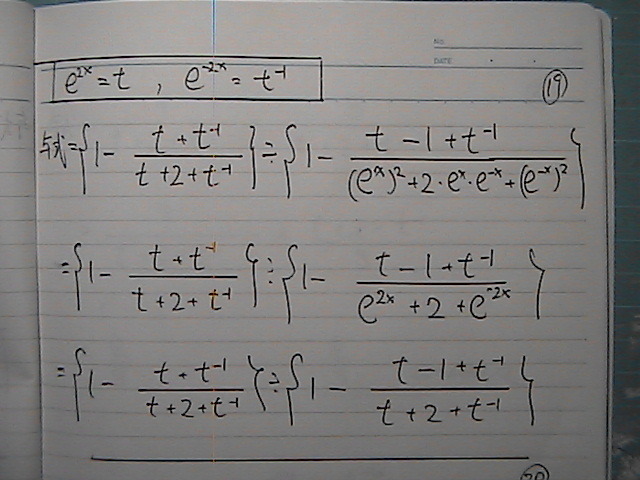 No.
DATE
e^{2x} = t , e^{-2x} = t^{-1}
⑲
与式 = { 1 - \frac{t + t^{-1}}{t + 2 + t^{-1}} } ÷ { 1 - \frac{t - 1 + t^{-1}}{(e^x)^2 + 2・e^x・e^{-x} + (e^{-x})^2} }
= { 1 - \frac{t + t^{-1}}{t + 2 + t^{-1}} } ÷ { 1 - \frac{t - 1 + t^{-1}}{e^{2x} + 2 + e^{-2x}} }
= { 1 - \frac{t + t^{-1}}{t + 2 + t^{-1}} } ÷ { 1 - \frac{t - 1 + t^{-1}}{t + 2 + t^{-1}} }